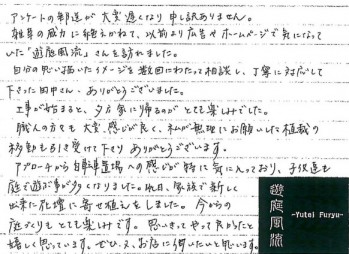 アンケートの郵送が大変遅くなり申し訳ありません。
雑草の威力に絶えかねて、以前より広告やホームページで気になって
いた「遊庭風流」さんを訪れました。
自分の思い描いたイメージを数回にわたって相談し、丁寧に対応して
下さった田中さん、ありがとうございました。
工事が始まると、夕方家に帰るのがとても楽しみでした。
職人の方々も大変、感じが良く、私が無理にお願いした植栽の
移動も引き受けて下さりありがとうございます。
アプローチから自転車置場への感じが特に気に入っており、子供達も
庭で遊ぶ事が多くなりました。昨日、家族で新しく
出来た花壇に寄せ植えをしました。今からの
庭づくりもとても楽しみです。思いきってやって良かったと
嬉しく思っています。ぜひ、又、お店に伺いたいと思います。
遊庭風流
-Yutei Furyu-